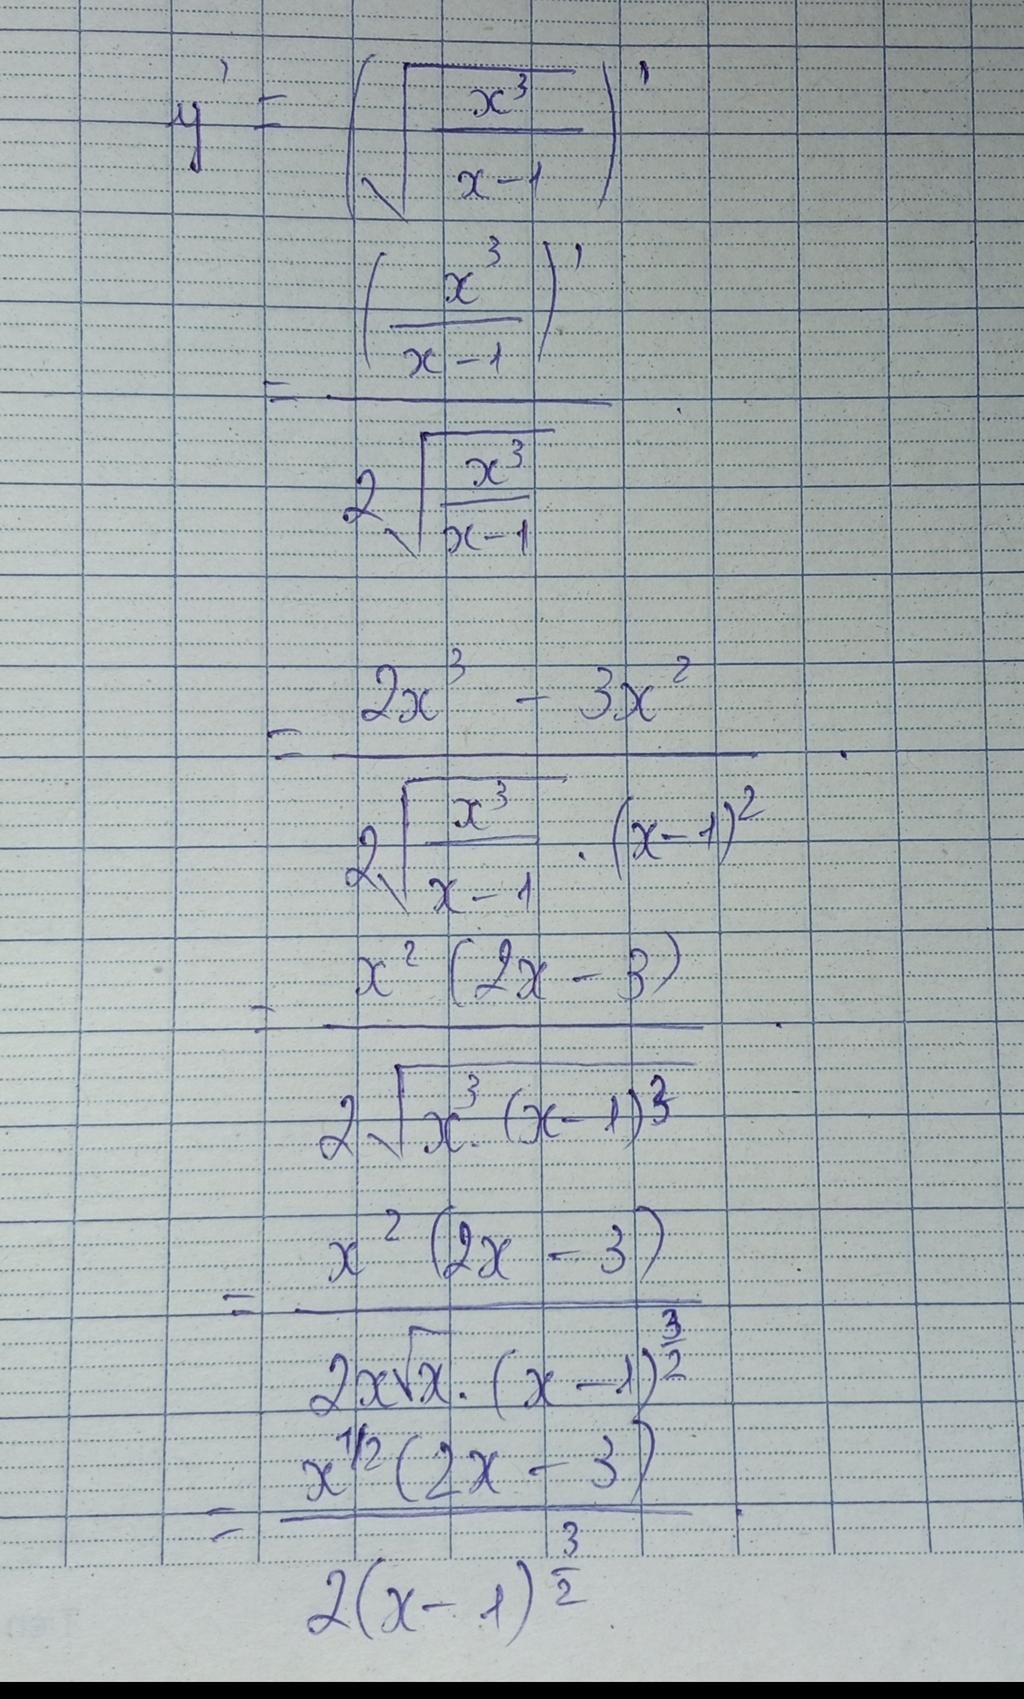 y' = (√(x³/(x-1)))'
= (x³/(x-1))' / (2√(x³/(x-1)))
= (2x³ - 3x²) / (2√(x³/(x-1)) . (x-1)²)
= x² (2x - 3) / (2√(x³. (x-1)³))
= x² (2x - 3) / (2x√x . (x-1)^(3/2))
= x^(1/2) (2x - 3) / (2(x-1)^(3/2))